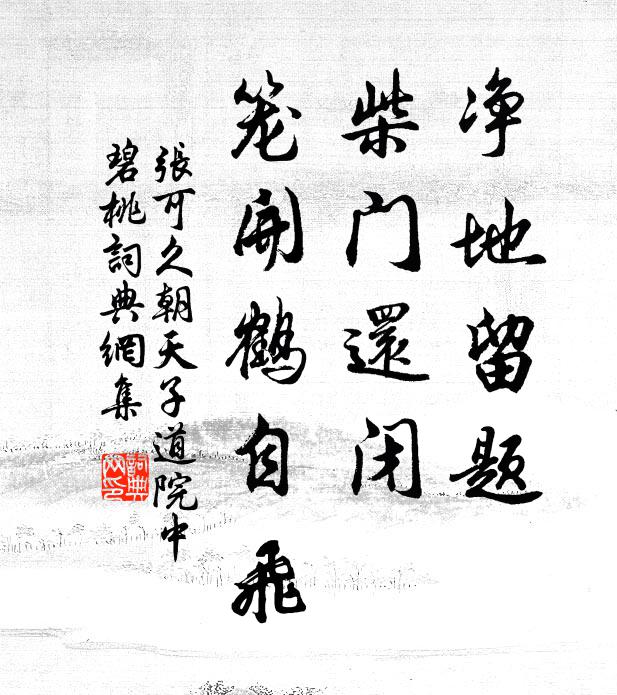 净地留题
柴门還闭
笼開鹤自飛
張可久朝天子道院中
碧桃詞典網集
詞典網印